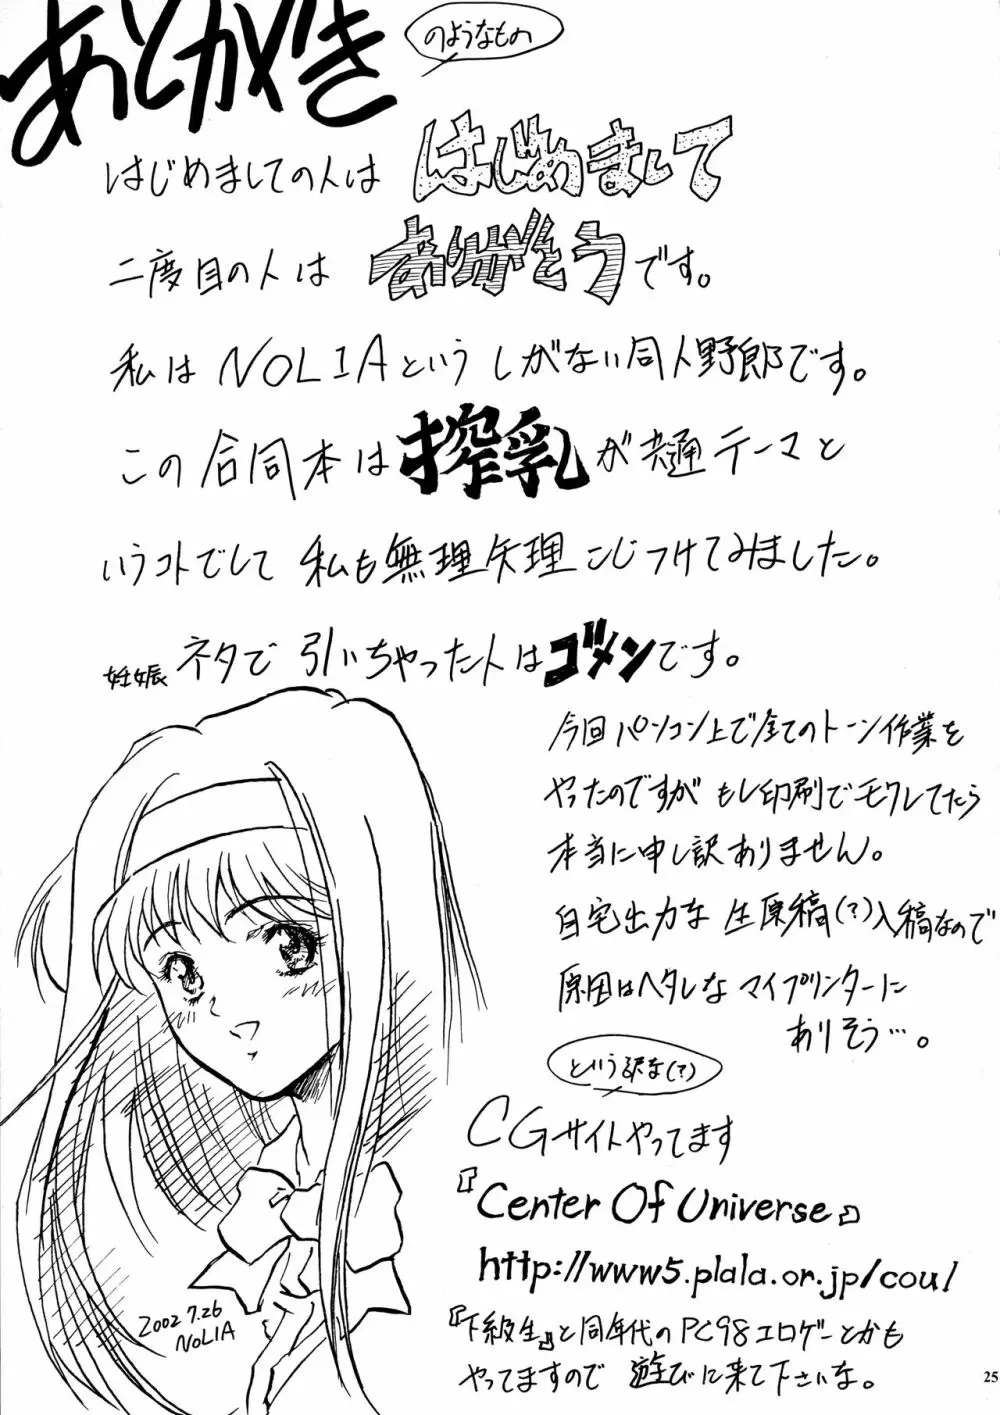 あとがき
のようなもの
はじめましての人は はじめまして
二度目の人は ありがとうです。
私はNOLIAという しがない同人野郎です。
この合同本は搾乳が共通テーマと
いうコトでして 私も無理矢理こじつけてみました。
妊娠ネタで 引いちゃった人はゴメンです。
今回パソコン上で全てのトーン作業を
やったのですが もし印刷でモワレてたら
本当に申し訳ありません。
自宅出力な 生原稿(?)入稿なので
原因はヘタレな マイプリンターに
ありそう…。
という訳な(?)
CGサイトやってます
『Center Of Universe』
http://www5.plala.or.jp/cou/
『下級生』と同年代のPC98エロゲーとかも
やってますので 遊びに来て下さいな。
2002 7.26
NOLIA
25